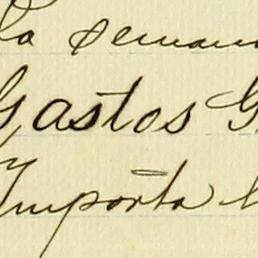 la semana
Gastos G
Importa l